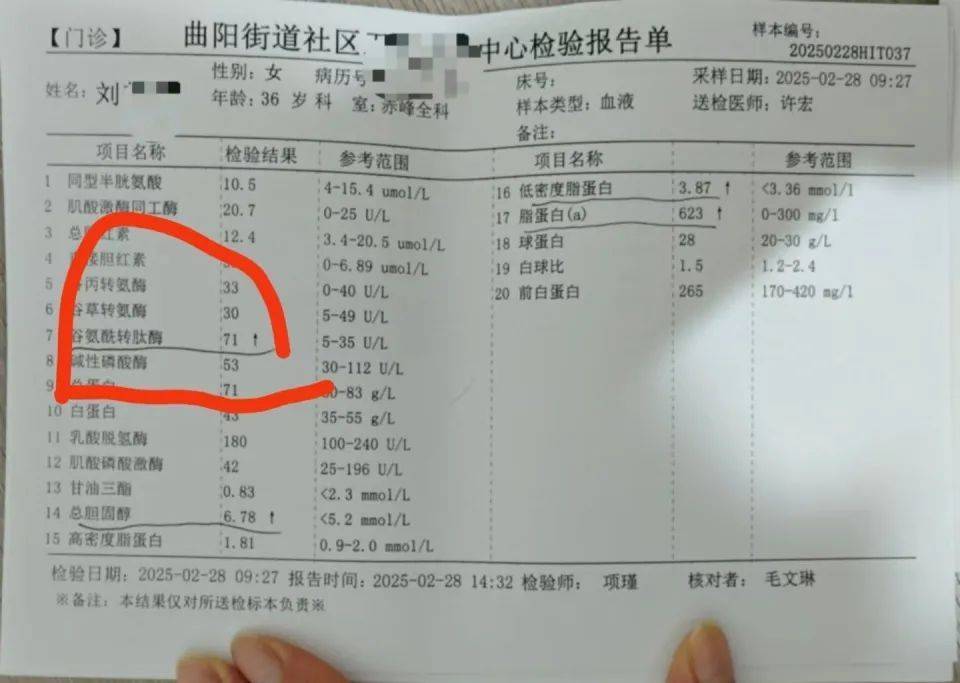 【门诊】 曲阳街道社区 中心检验报告单 样本编号:
20250228HIT037
姓名: 刘 性别: 女 病历号 床号: 采样日期: 2025-02-28 09:27
年龄: 36 岁 科 室: 赤峰全科 样本类型: 血液 送检医师: 许宏
备注:
项目名称 检验结果 参考范围 项目名称 参考范围
1 同型半胱氨酸 10.5 4-15.4 umol/L 16 低密度脂蛋白 3.87 ↑ <3.36 mmol/l
2 肌酸激酶同工酶 20.7 0-25 U/L 17 脂蛋白(a) 623 ↑ 0-300 mg/l
3 总 红素 12.4 3.4-20.5 umol/L 18 球蛋白 28 20-30 g/L
4 接胆红素 0-6.89 umol/L 19 白球比 1.5 1.2-2.4
5 丙转氨酶 33 0-40 U/L 20 前白蛋白 265 170-420 mg/l
6 谷草转氨酶 30 5-49 U/L
7 谷氨酰转肽酶 71 ↑ 5-35 U/L
8 碱性磷酸酶 53 30-112 U/L
9 总蛋白 71 0-83 g/L
10 白蛋白 43 35-55 g/L
11 乳酸脱氢酶 180 100-240 U/L
12 肌酸磷酸激酶 42 25-196 U/L
13 甘油三酯 0.83 <2.3 mmol/L
14 总胆固醇 6.78 ↑ <5.2 mmol/L
15 高密度脂蛋白 1.81 0.9-2.0 mmol/L
检验日期: 2025-02-28 09:27 报告时间: 2025-02-28 14:32 检验师: 项瑾 核对者: 毛文琳
※备注: 本结果仅对所送检标本负责※